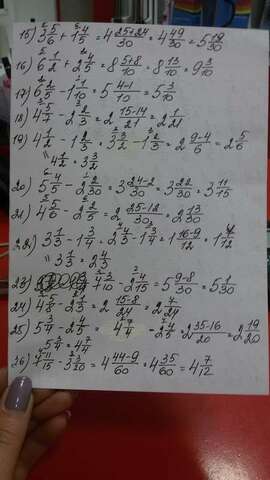 15) 3 5/6 + 1 4/5 = 4 25+24/30 = 4 49/30 = 5 19/30
16) 6 1/2 + 2 4/5 = 8 5+8/10 = 8 13/10 = 9 3/10
17) 6 2/5 - 1 1/10 = 5 4-1/10 = 5 3/10
18) 4 5/7 - 2 2/3 = 2 15-14/21 = 2 1/21
19) 4 1/2 - 1 2/3 = 3 3/2 - 1 2/3 = 2 9-4/6 = 2 5/6
4 1/2 = 3 3/2
20) 5 4/5 - 2 2/30 = 3 24-2/30 = 3 22/30 = 3 11/15
21) 4 5/6 - 2 2/5 = 2 25-12/30 = 2 13/30
22) 3 1/3 - 1 3/4 = 2 4/3 - 1 3/4 = 1 16-9/12 = 1 7/12
3 1/3 = 2 4/3
23) 3/10 - 2 4/15 = 5 9-8/30 = 5 1/30
24) 4 5/8 - 2 1/3 = 2 15-8/24 = 2 7/24
25) 5 3/4 - 2 4/5 = 4 7/4 - 2 4/5 = 2 35-16/20 = 2 19/20
5 3/4 = 4 7/4
26) 11/15 - 3 3/20 = 4 44-9/60 = 4 35/60 = 4 7/12